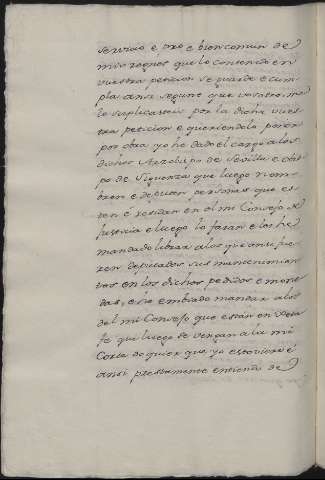 servicio e pro e bien comun de
mis regnos que lo contenido en
vuestra peticion se guarde e cum
pla ansi segunt que vosotros me
lo suplicasteis por la dicha vues
tra peticion e queriendolo poner
por obra yo he dado el cargo a los
dichos Arzobispo de Sevilla e obis
po de Siguenza que luego nom
bren e deputen personas que es
ten e residan en el mi Consejo de
Justicia e luego lo faran e les he
mandado librar a los que ansi fue
ren deputados sus mantenimien
tos en los dichos pedidos e mone
das, e he embiado mandar a los
del mi Consejo que estan en
que luego se vengan a la mi
Corte do quier que yo estoviere e
ansi prestamente entiendo de